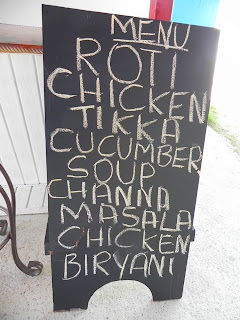 MENU
ROTI
CHICKEN
TIKKA
CUCUMBER
SOUP
CHANNA
MASALA
CHICKEN
BIRYANI